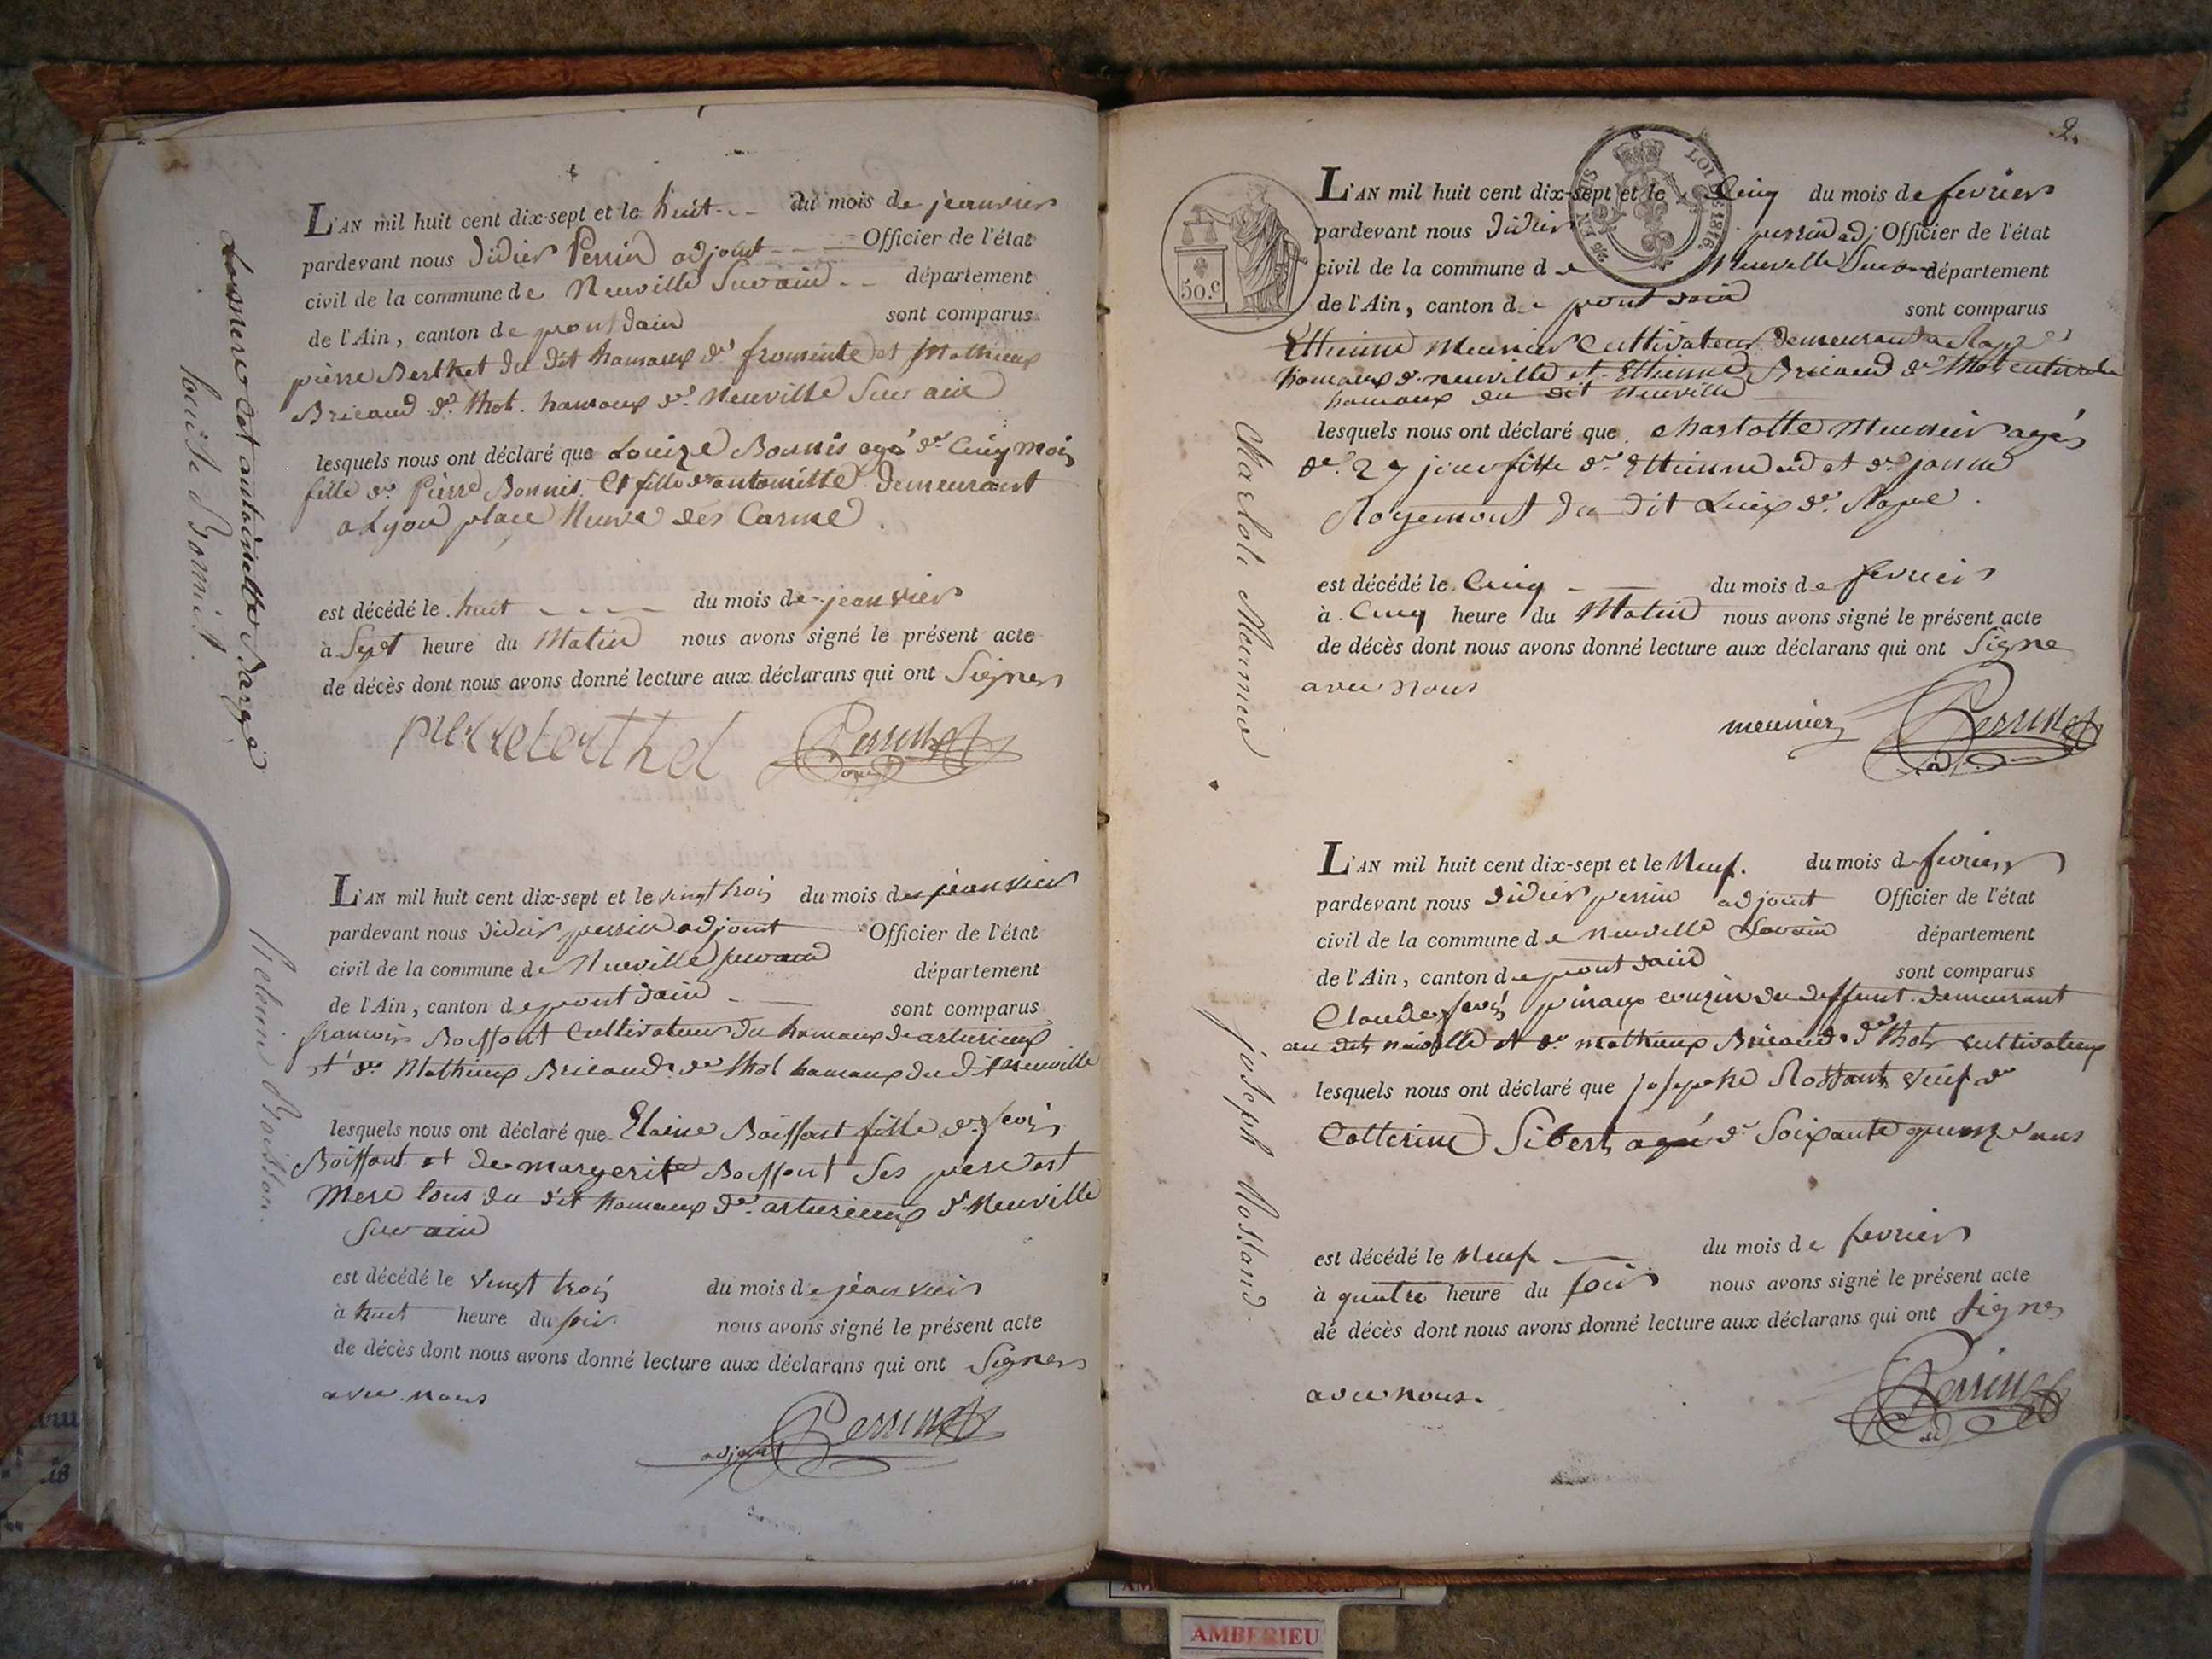 L'AN mil huit cent dix-sept et le huit du mois de jeanvier
pardevant nous didier Perrin adjoint Officier de l'état
civil de la commune de Neuville Survain département
de l'Ain, canton de pont dain sont comparus
pierre Berthet du dit hamaux de fromente et Mathieux
Bricaud de thot. hamaux de Neuville Sur ain
lesquels nous ont déclaré que Louize Bonnis agé de Cinq mois
fille de Pierre Bonnis et fille d'antoinitte demeurant
a Lyon place Neuve des Carme
est décédé le huit du mois de jeanvier
à Sept heure du Matin nous avons signé le présent acte
de décès dont nous avons donné lecture aux déclarans qui ont Signer
pierre berthet Perrin
la mere est antoinette Barge
louise Bonnis
L'AN mil huit cent dix-sept et le vingt trois du mois de jeanvier
pardevant nous didier perrin adjoint Officier de l'état
civil de la commune de Neuville survain département
de l'Ain, canton de pont dain sont comparus
francois Boissont Cultivateur du hamaux de arturieux
et de Mathieux Bricaud de thol hamaux du dit neuville
lesquels nous ont déclaré que Elaine Boissont fille de fcois
Boissont et de margerite Boissont Ses pere est
Mere tous du dit hamaux de arturieux de Neuville
Surain
est décédé le vingt trois du mois de jeanvier
à huit heure du soir nous avons signé le présent acte
de décès dont nous avons donné lecture aux déclarans qui ont Signer
avec nous
adjoint Perrin
Boisson.
2.
LOI DE 1816
50.c
L'AN mil huit cent dix-sept et le Cinq du mois de fevrier
pardevant nous didier perrin adj Officier de l'état
civil de la commune de Neuville Surain département
de l'Ain, canton de pont dain sont comparus
Ettienne Meunier Cultivateur demeurant a Rape
hamaux de neuville et Ettienne Bricaud de thol cultivateur
hamaux du dit Neuville
lesquels nous ont déclaré que charlotte Meunier agés
de 27 jour fille de Ettienne et de janne
Rogemont du dit Lieux de Rape.
est décédé le Cinq du mois de fevrier
à Cinq heure du Matin nous avons signé le présent acte
de décès dont nous avons donné lecture aux déclarans qui ont Signe
avec nous
meunier Perrin
Charlote Meunié
L'AN mil huit cent dix-sept et le Neuf. du mois de fevrier
pardevant nous didier perrin adjoint Officier de l'état
civil de la commune de Neuville Survain département
de l'Ain, canton de pont dain sont comparus
Claude fcois pinaux couzin du deffunt demeurant
au dit neuville et de mathieux Bricaud de thol cultivateur
lesquels nous ont déclaré que josephe Rossant veuf de
Catterine Sibert agé de Soixante quinze ans
est décédé le Neuf du mois de fevrier
à quatre heure du soir nous avons signé le présent acte
de décès dont nous avons donné lecture aux déclarans qui ont signer
avec nous.
Perrin
joseph Mossand
AMBERIEU